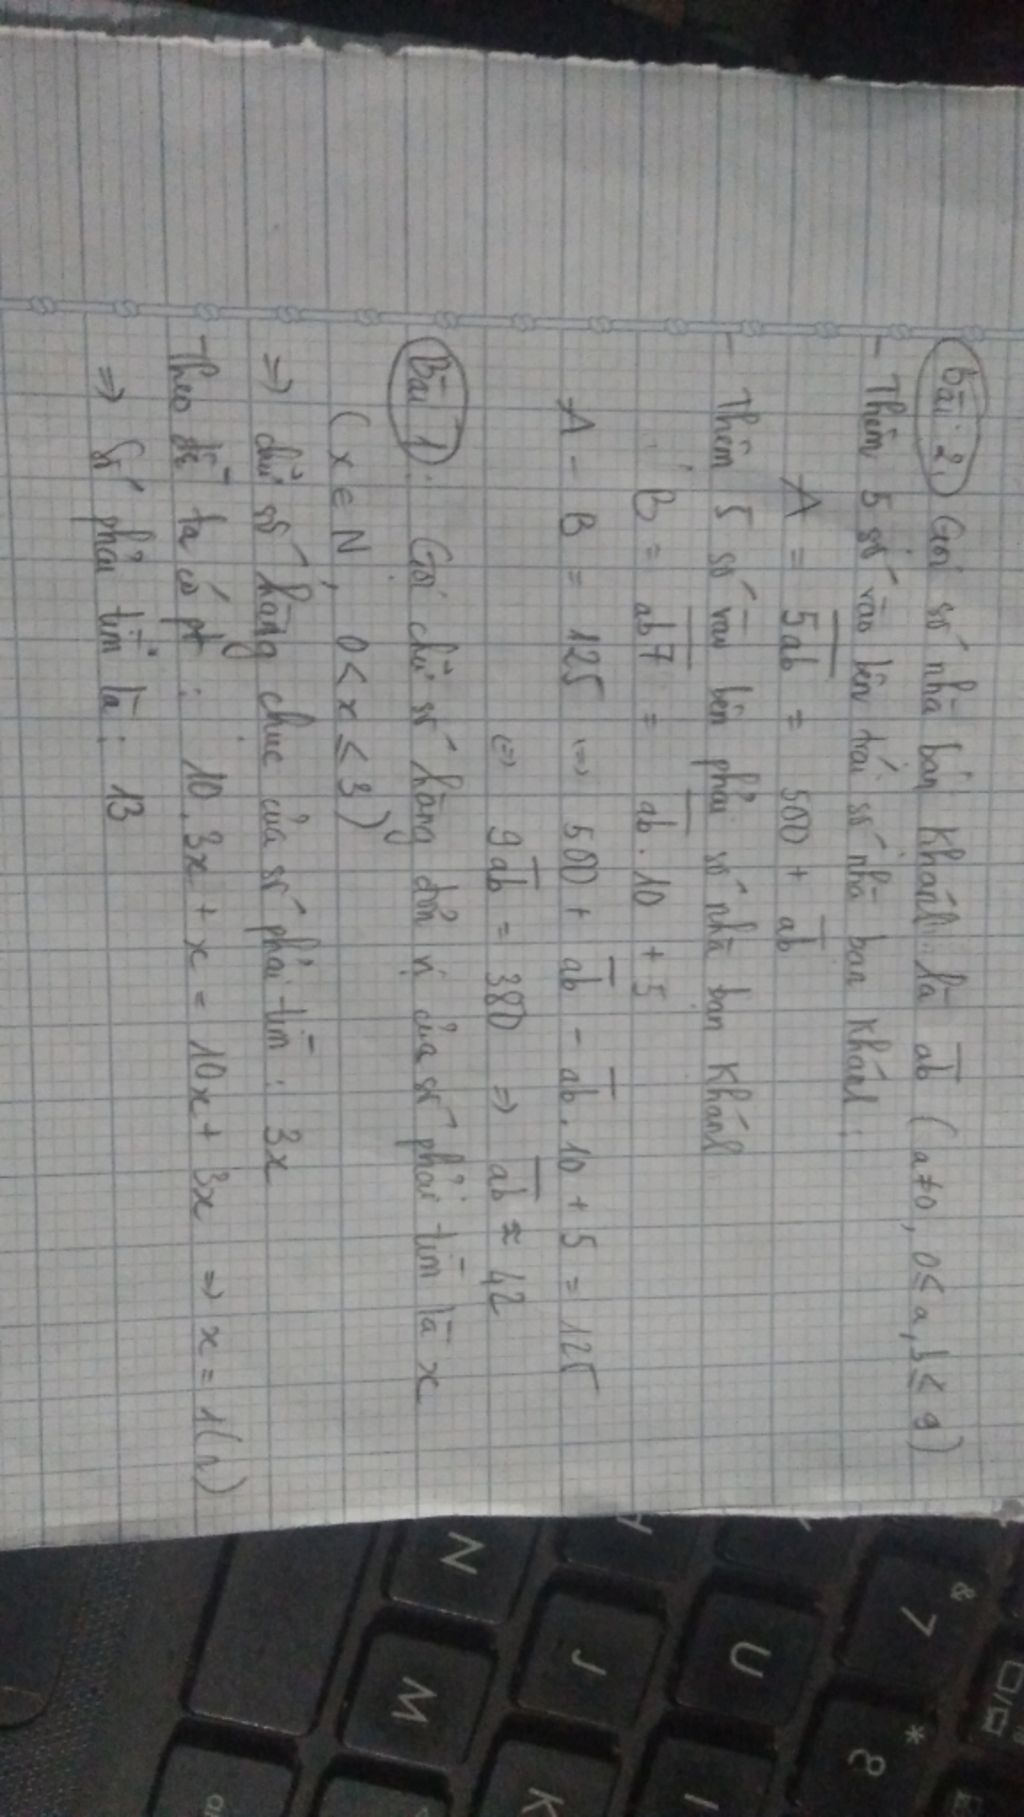 Bài 2, Gọi số nhà bạn Khánh là ab̅ ( a ≠ 0, 0 ≤ a, b ≤ 9 )
- Thêm 5 số vào bên trái số nhà bạn Khánh :
A = 5ab̅ = 500 + ab̅
- Thêm 5 số vào bên phải số nhà bạn Khánh
B = ab7̅ = ab̅ . 10 + 5
A - B = 125 <=> 500 + ab̅ - ab̅ . 10 + 5 = 125
<=> 9ab̅ = 380 => ab̅ ≈ 42
Bài 1 : Gọi chữ số hàng đơn vị của số phải tìm là x
( x ∈ N, 0 < x ≤ 3 )
=> chữ số hàng chục của số phải tìm : 3x
Theo đề ta có pt : 10 . 3x + x = 10x + 3x => x = 1 (n)
=> Số phải tìm là : 13
N
M
J
K
U
I
& 7
* 8